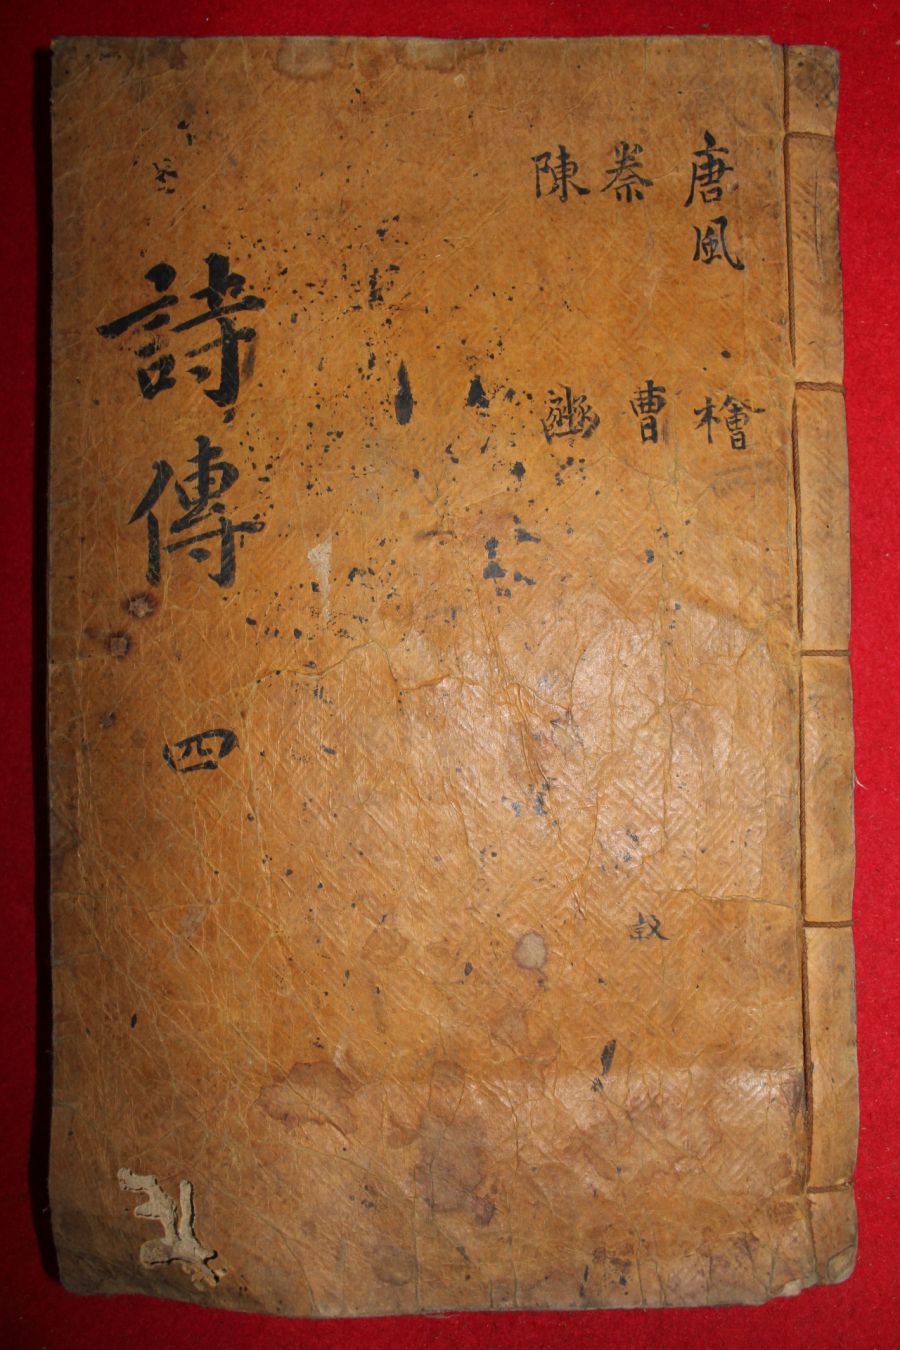 唐風
秦
陳
檜
曹
豳
詩傳 四